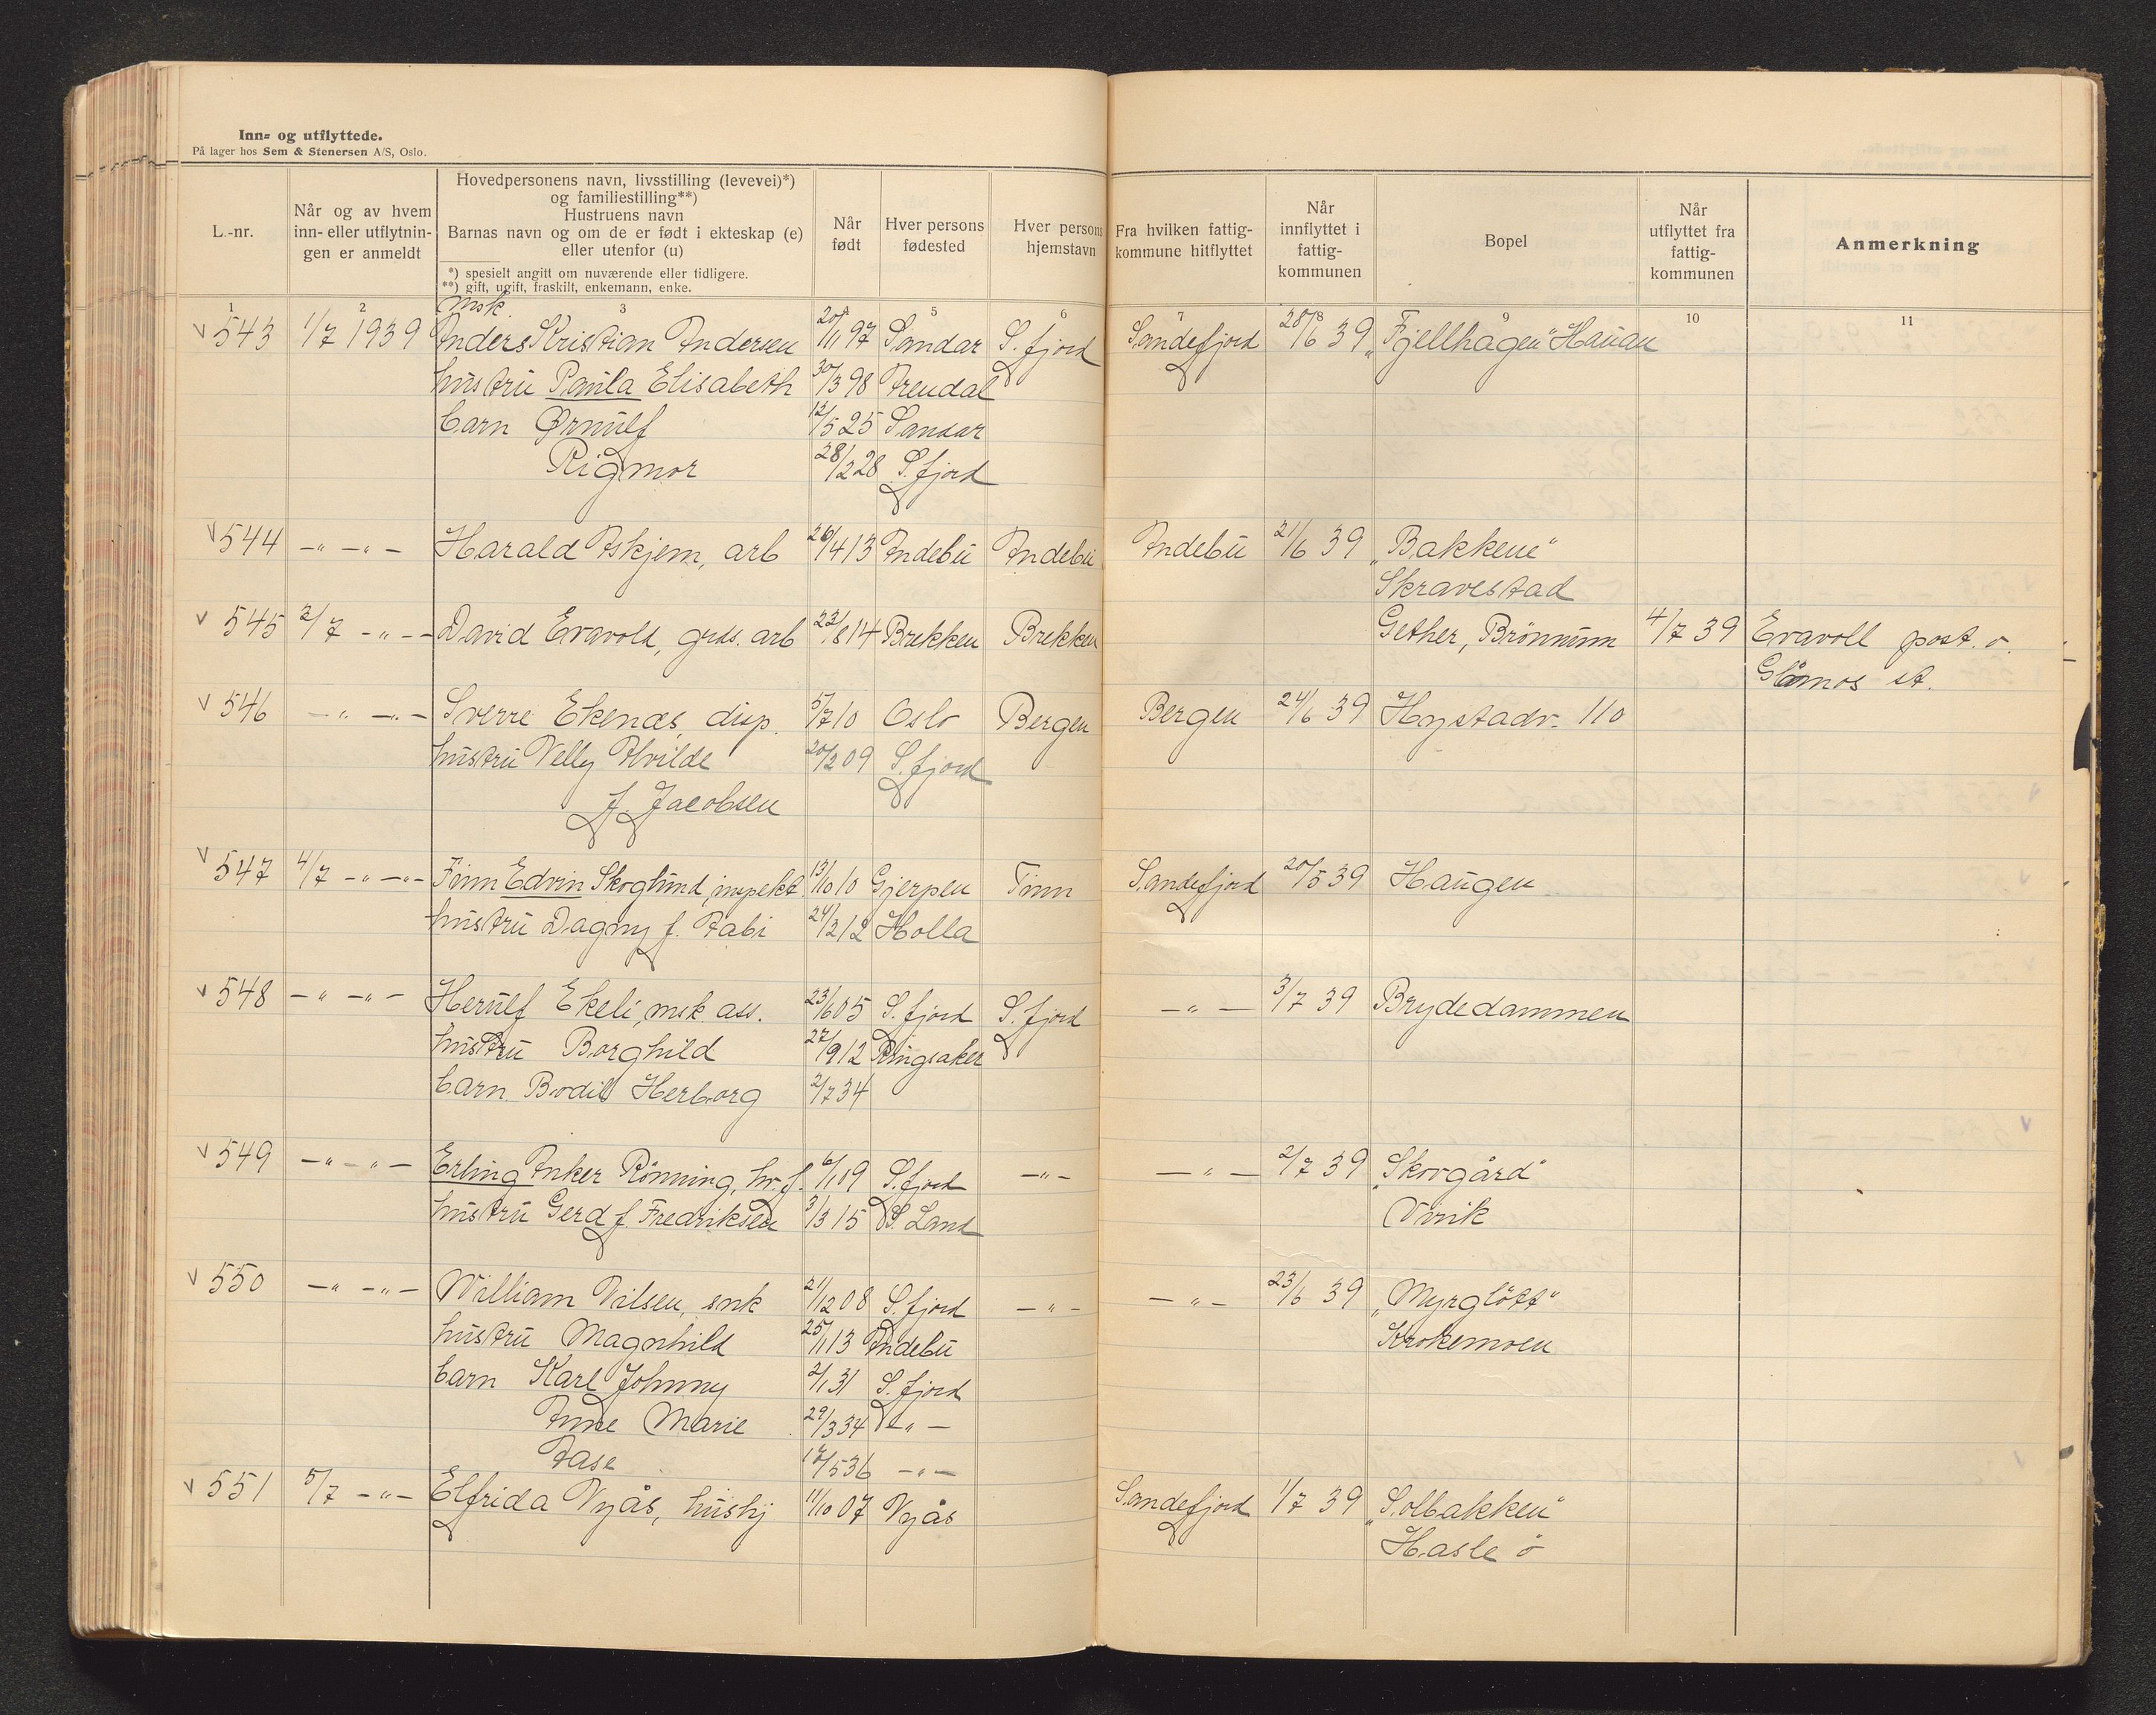 Inn- og utflyttede.
På lager hos Sem & Stenersen A/S, Oslo.
L.-nr.
Når og av hvem
inn- eller utflytnin-
gen er anmeldt
Hovedpersonens navn, livsstilling (levevei)*)
og familiestilling**)
Hustruens navn
Barnas navn og om de er født i ekteskap (e)
eller utenfor (u)
*) spesielt angitt om nuværende eller tidligere.
**) gift, ugift, fraskilt, enkemann, enke.
Når
født
Hver persons
fødested
Hver persons
hjemstavn
Fra hvilken fattig-
kommune hitflyttet
Når
innflyttet i
fattig-
kommunen
Bopel
Når
utflyttet fra
fattig-
kommunen
Anmerkning
1 2 3 5 6 7 8 9 10 11
msk.
543 1/7 1939 Anders Kristian Andersen 20/11 97 Sandar S.fjord Sandefjord 28/6 39 „Fjellhagen" Hauan
hustru Paula Elisabeth 30/3 98 Arendal
barn Ørnulf 12/5 25 Sandar
Rigmor 28/2 28 S.fjord
544 -"-"- Harald Askjem, arb 26/4 13 Andebu Andebu Andebu 21/6 39 „Bakkene"
Skravestad
545 2/7 -"- David Evavold, grds. arb 22/8 14 Brekken Brekken Gether, Brönnum 4/7 39 Evavoll post. o.
Glåmos st.
546 -"-"- Sverre Ekenæs, disp. 5/7 10 Oslo Bergen Bergen 24/6 39 Hystadv. 110
hustru Nelly Alvilde 20/2 09 S.fjord
f. Jacobsen
547 4/7 -"-"- Finn Edvin Skoglund, inspekt 13/10 10 Gjerpen Tinn Sandefjord 20/5 39 Haugen
hustru Dagny f. Aabi 24/2 12 Holla
548 -"-"- Herulf Ekeli, msk. ass. 23/6 05 S.fjord S.fjord -"- 3/7 39 Brydedammen
hustru Borghild 27/9 12 Ringsaker
barn Bodil Herborg 2/7 34
549 -"-"- Erling Anker Rönning, hv.f. 6/1 09 S.fjord -"- -"- 2/7 39 „Skovgård"
hustru Gerd f. Fredriksen 3/3 15 S. Land
Virik
550 -"-"- William Nilsen, snk 21/12 08 S.fjord -"- -"- 23/6 39 „Myrglött"
hustru Magnhild 25/1 13 Andebu Krokemoen
barn Karl Johnny 2/1 31 S.fjord
Anne Marie 29/3 34 -"-
Aase 17/5 36 -"-
551 5/7 -"- Elfrida Nyås, hushj 11/10 07 Nyås Sandefjord 1/7 39 „Solbakken"
Hasle ö